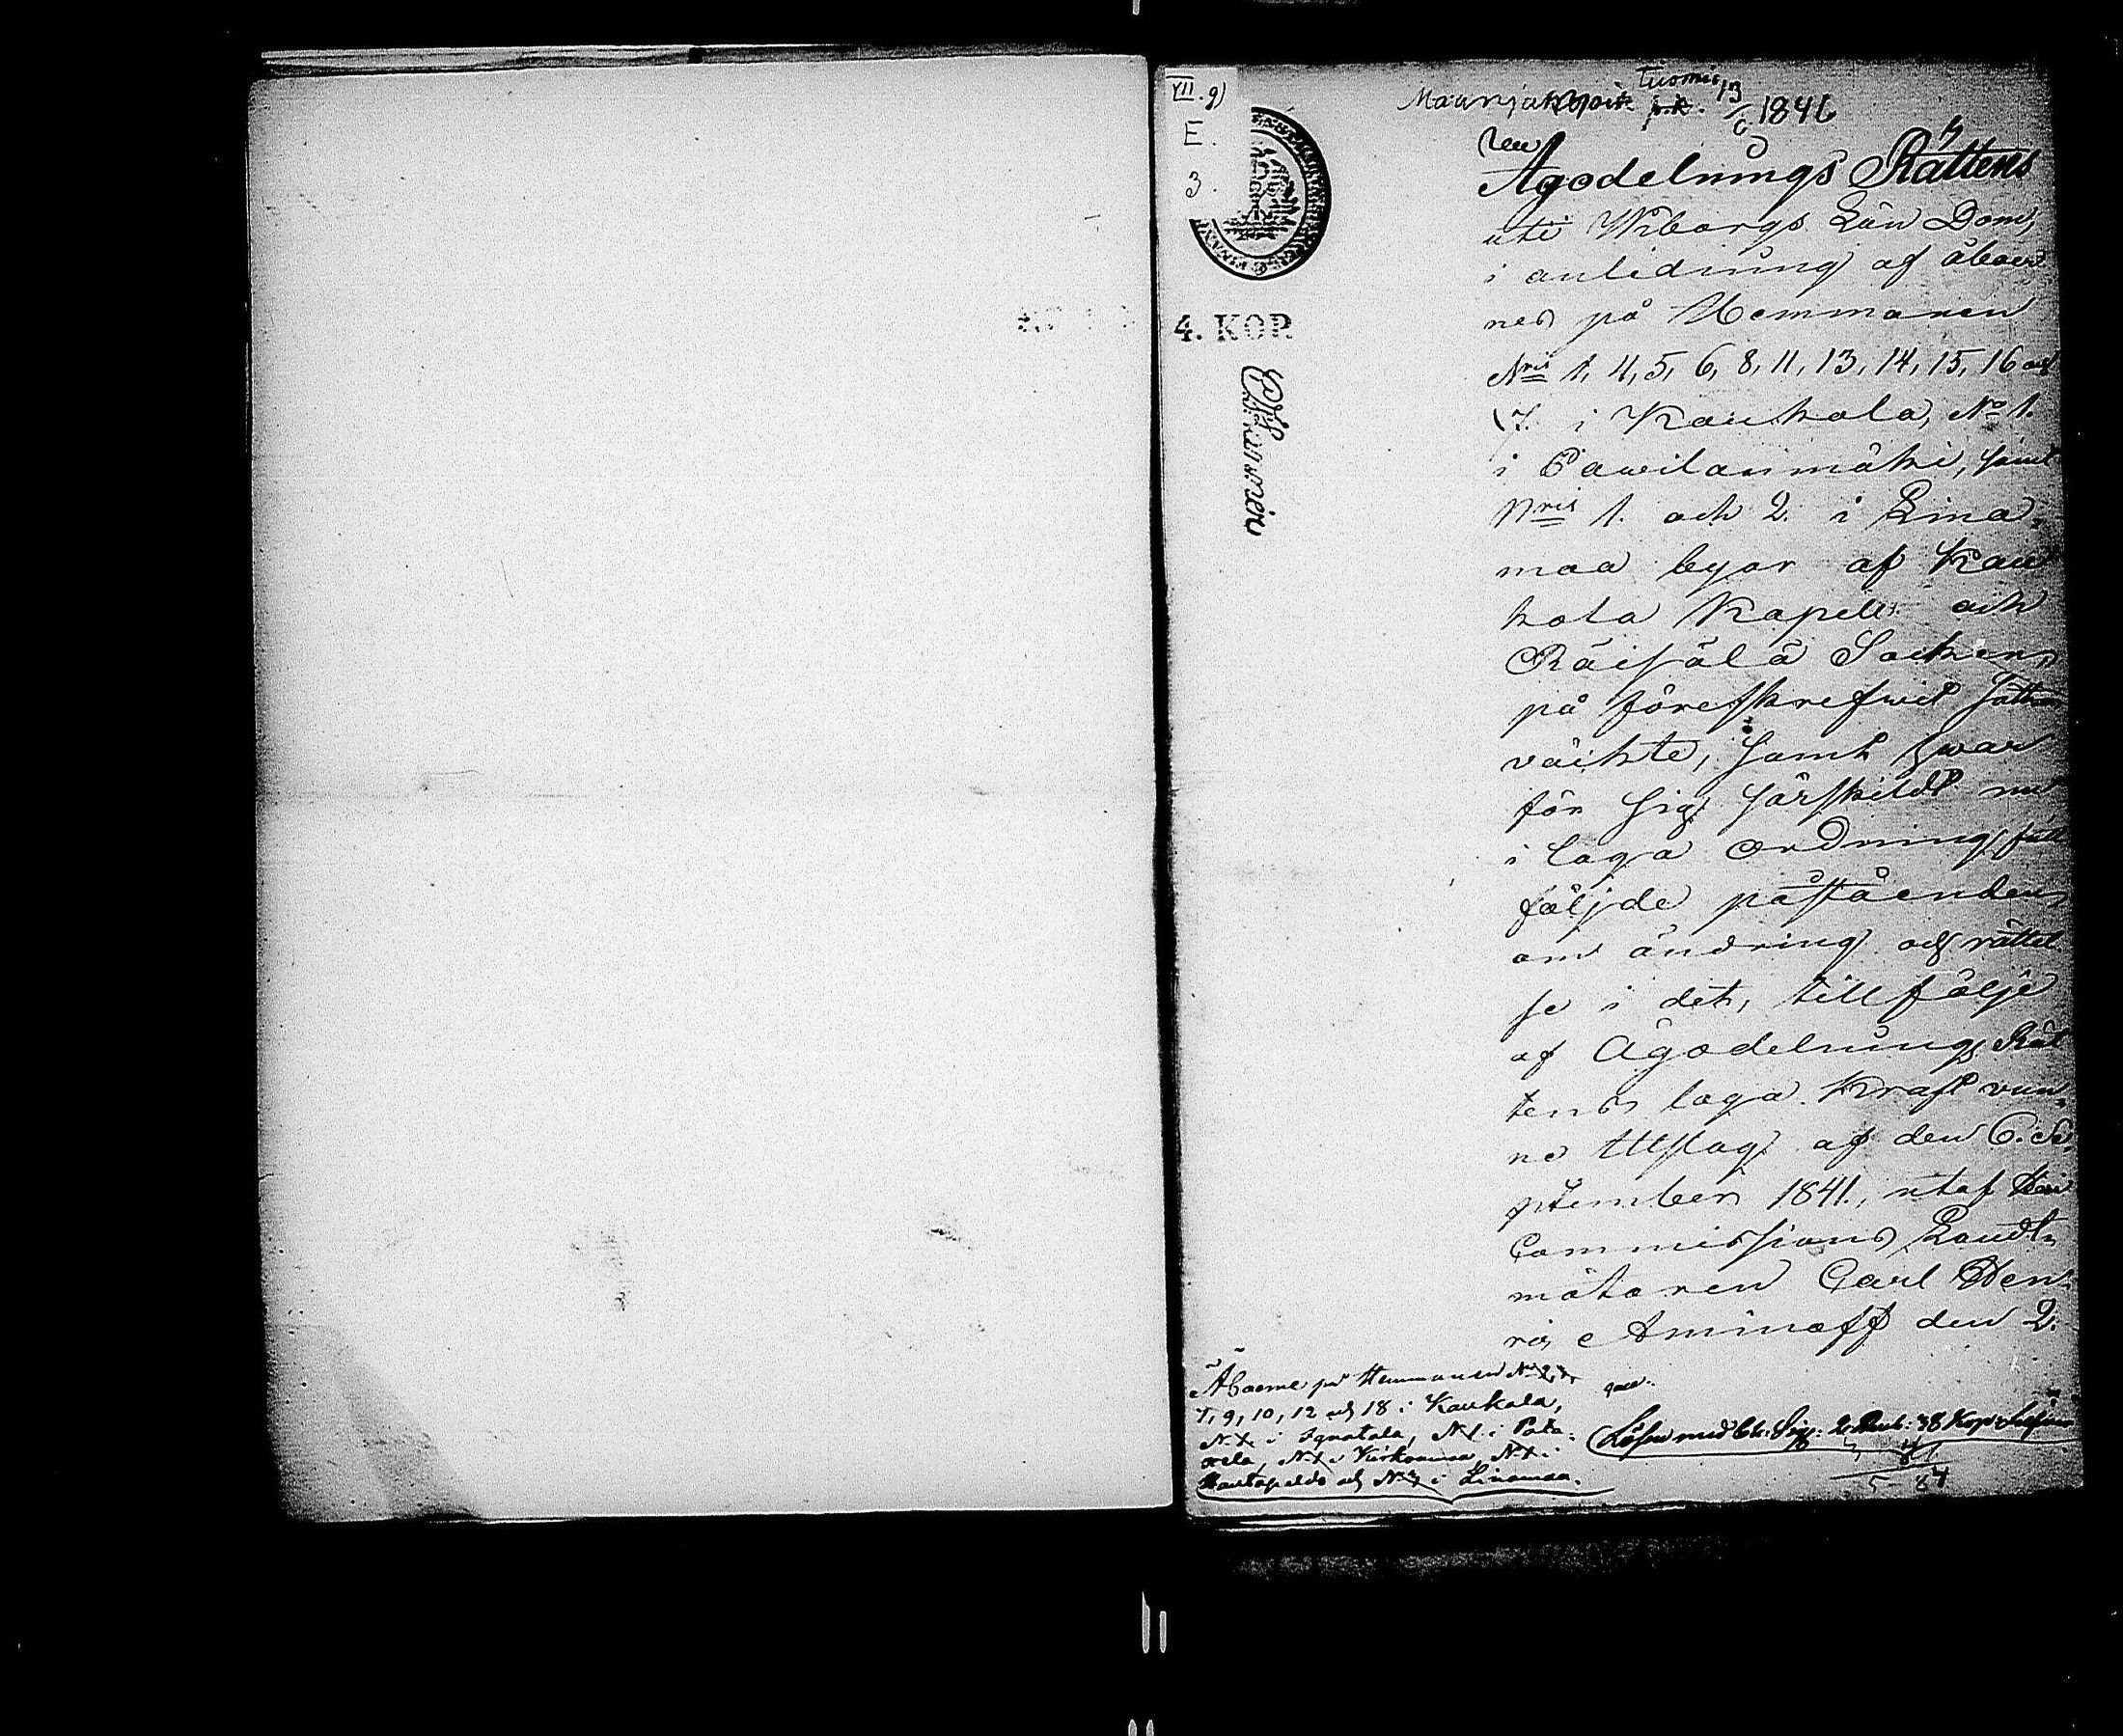 VII. g)
E.
3.
4. KOP
Maanjako tuomio 13/6 1846
Ägodelnings Rättens
uti Wiborgs Län Dom,
i anledning af åboer-
nes på Hemmanen
Nris 1, 4, 5, 6, 8, 11, 13, 14, 15, 16 och
17. i Kaukola, No 1.
i Pawilanmäki, samt
Nris 1. och 2. i Lina-
maa byar af Kau
kola Kapell och
Räisälä Socken
på föreskrefvet sätt
väckte, samt hvar
för sig särskildt nu
i laga ordning full
följde påståenden
om ändring och rättel
se i det, till följe
af Ägodelnings Rät
tens laga Kraft vun-
ne Utslag af den 6. Se-
ptember 1841., utaf
Commissions Landt-
mätaren Carl Hen-
ric Aminoff den 2.
Åboerne på Hemmanen No 2, 3,
7, 9, 10, 12 och 18 i Kaukola,
No 1. i Ignatala, No 1. i Pota-
rela, No 1 i Kirkonmaa, No 1 i
Hautapeldo och No 3 i Linamaa.
Lösen med Ch. Sig: 2. Rub: 38 Kop:
5 - 87